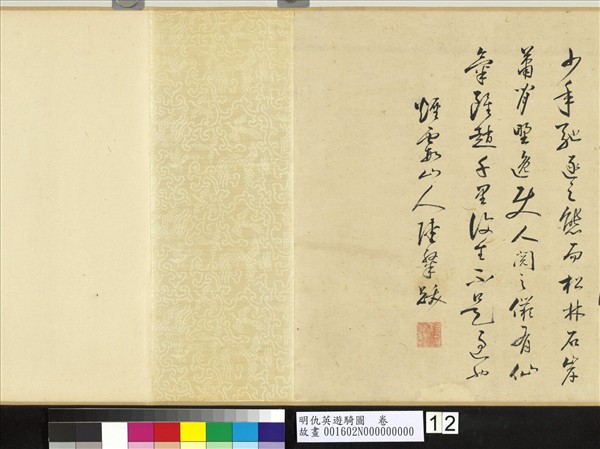 少年馳逐之態而松林石岸
蕭省野逸使人閱之儼有仙
氣雖趙千里復生不是過也
煙霞山人陸粲跋
明仇英遊騎圖 卷
故畫 001602N000000000
12